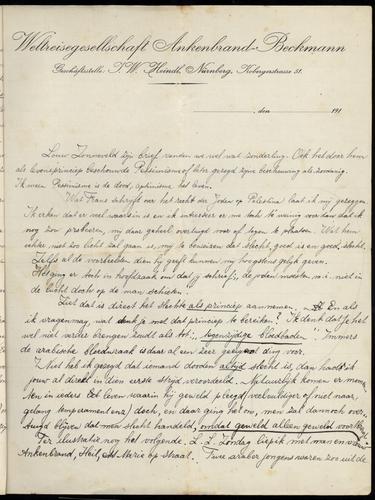 Weltreisegesellschaft Ankenbrand-Beckmann
Geschäftsstelle: J. W. Heindl, Nürnberg, Kobergerstrasse 51.
, den 191
Louw Zonneveld zijn brief vonden we wel wat zonderling. Ook het door hem
als levensprincip beschouwde Pessimisme of beter gezegd zijn beschouwing als zoodanig.
Ik meen Pessimisme is de dood, optimisme het leven.
Wat Frans schrijft over het recht der Joden op Palestina laat ik mij gezeggen.
Ik erken dat er veel waars in is en ik intereseer er me toch te weinig voor dan dat ik
nog zou probeeren, mij daar geheel overtuigd voor of tegen te plaatsen. Wat hem
echter niet zoo licht zal gaan is, mij te bewijzen dat slecht, goed is en goed, slecht.
Zelfs al de voorbeelden die hij geeft kunnen mij hoogstens gelijk geven.
Het ging er toch in hoofdzaak om dat jij schrief: de joden moeten m.i. niet in
de lucht doch op de man schieten.
Ziet dat is direct het slechte als principe aannemen. En als
ik vragen mag, wat denk je met dat principe te bereiken? Ik denk dat je het
wel niet verder brengen zoudt als tot: "tegenzijdige bloedbaden". Immers
de arabische bloedwraak is daar al een zeer goed ding voor.
Niet heb ik gezegd dat iemand dooden altijd slecht is, dan had ik
jouw al direkt in dien eerste strijd veroordeeld. Natuurlijk komen er momen-
ten in ieders leven waarin hij geweld pleegt (veelvuldiger of niet naar-
gelang temperament enz) doch, en daar ging het om, men zal dan noch over-
tuigd blijven dat men slecht handeld, omdat geweld alleen geweld voortbrengt
Ter illustratie nog het volgende. L.L. Zondag liep ik met man en vrouw
Ankenbrand, Heil, en Marie op straat. Twee araber jongens waren zoo uit de